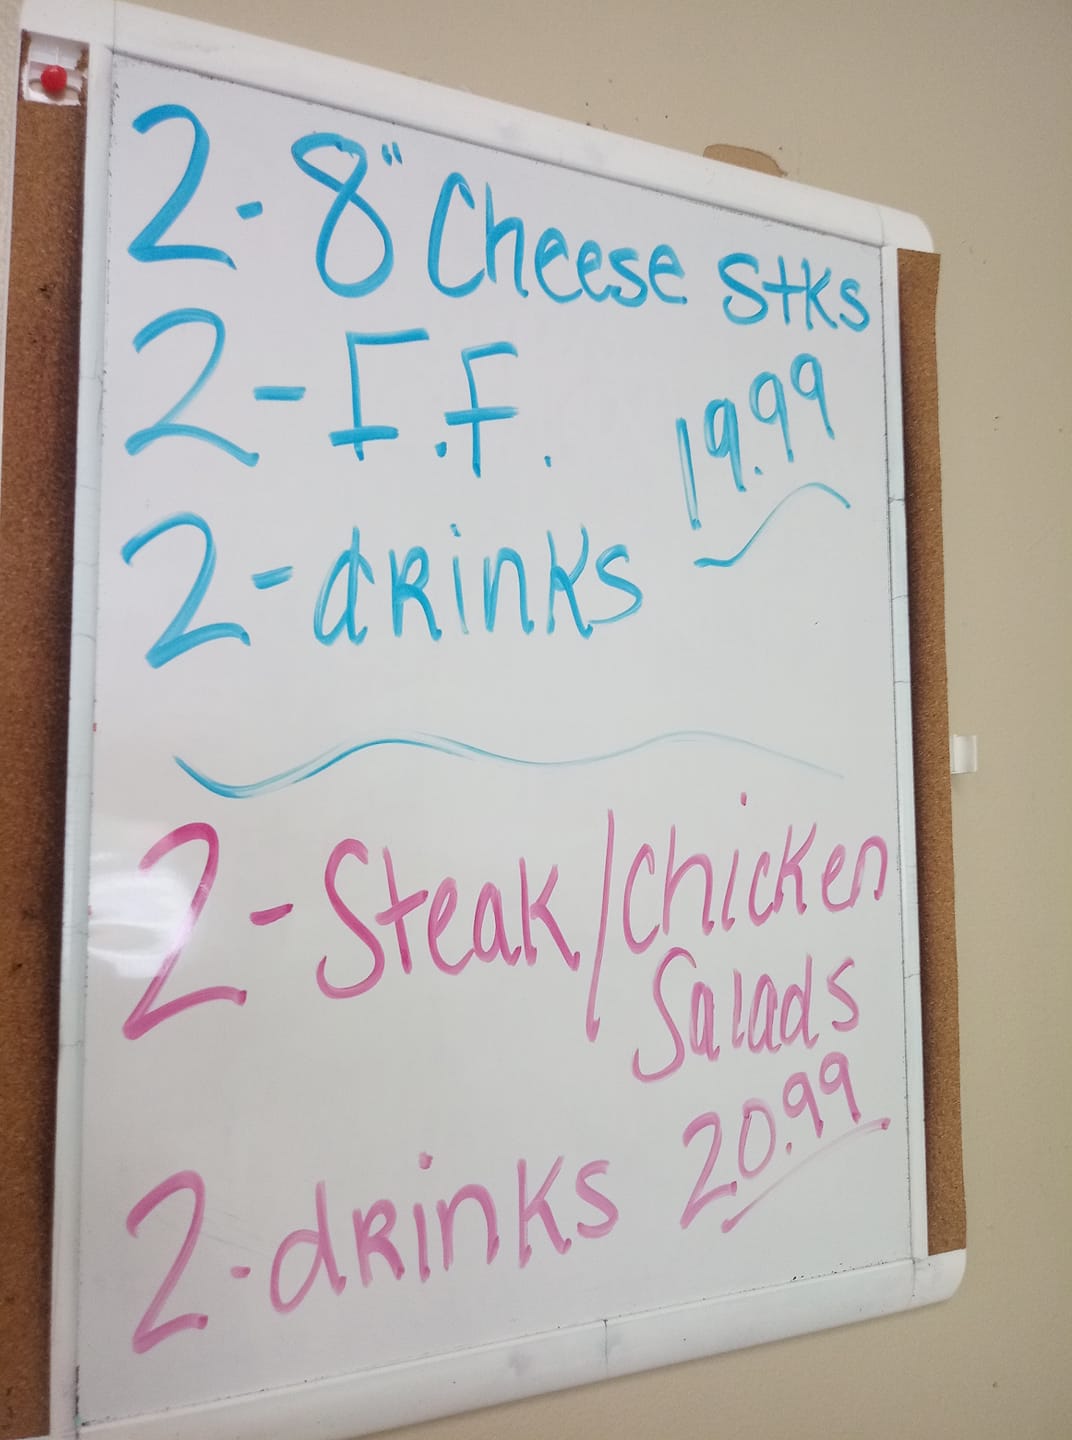 2-8" Cheese Stks
2-F.F.
19.99
2-drinks
2-Steak/Chicken
Salads
20.99
2-drinks